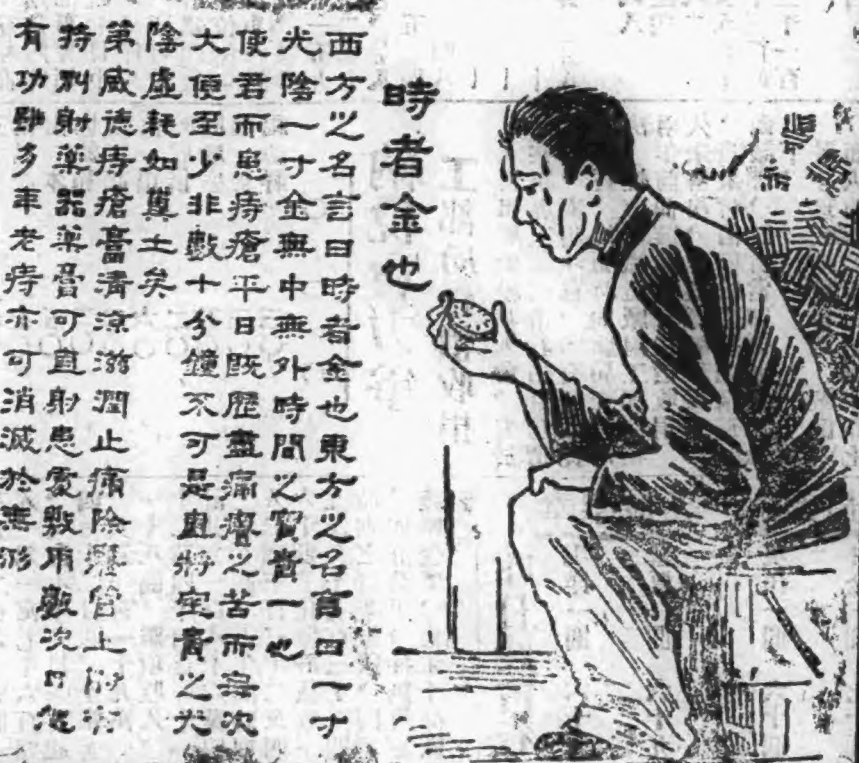 時者金也
西方之名言曰時者金也東方之名言曰一寸
光陰一寸金無中無外時間之寶貴一也
使君而患痔瘡平日既歷盡痛癢之苦而每次
大便至少非數十分鐘不可是直將寶貴之光
陰虛耗如糞土矣
第威德痔瘡膏清涼滋潤止痛除癢管上附有
特別射藥器藥膏可直射患處敷用數次即能
有功雖多年老痔亦可消滅於無形